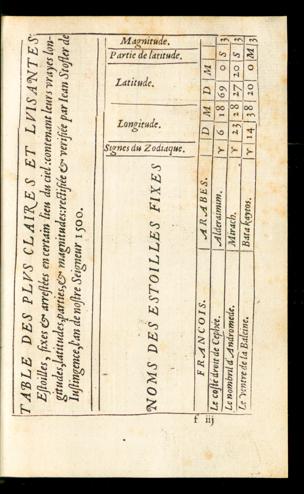 TABLE DES PLVS CLAIRES ET LVISANTES
Estoilles, fixes, & arrestées en certain lieu du ciel: contenant leurs vrayes lon-
gitudes, latitudes, parties, & magnitudes: rectifiée & verifiée par Iean Stofler de
Iustingence, l'an de nostre Seigneur 1500.
NOMS DES ESTOILLES FIXES
Signes du Zodiaque.
Longitude.
Latitude.
Partie de latitude.
Magnitude.
FRANCOIS. ARABES. D M D M
Le coste droit de Cephée. Alderaimum. ♈ 6 18 69 0 S 3
Le nombril d'Andromede. Mirach. ♈ 23 28 27 20 S 3
Le ventre de la Baleine. Bata kaytos. ♈ 14 38 20 0 M 3
f iij